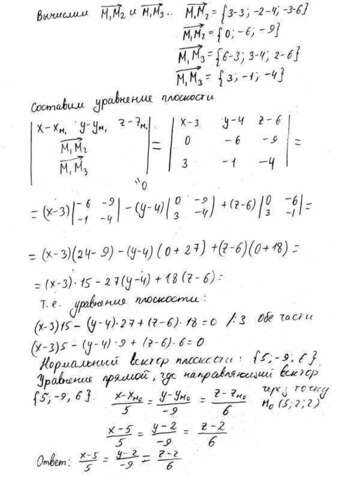 Вычислим M₁M₂ и M₁M₃.. M₁M₂ = {3-3; -2-4; -3-6}
M₁M₂ = {0; -6; -9}
M₁M₃ = {6-3; 3-4; 2-6}
M₁M₃ = {3; -1; -4}
Составим уравнение плоскости
| x-xM₁ y-yM₁ z-zM₁ | = | x-3 y-4 z-6 |
| M₁M₂ | = | 0 -6 -9 | =
| M₁M₃ | | 3 -1 -4 |
"0
= (x-3) |-6 -9; -1 -4| - (y-4) |0 -9; 3 -4| + (z-6) |0 -6; 3 -1| =
= (x-3)(24-9) - (y-4)(0+27) + (z-6)(0+18) =
= (x-3)·15 - 27(y-4) + 18(z-6) =
Т.е. уравнение плоскости:
(x-3)15 - (y-4)·27 + (z-6)·18 = 0 /:3 обе части
(x-3)5 - (y-4)·9 + (z-6)·6 = 0
Нормальный вектор плоскости: {5; -9; 6}.
Уравнение прямой, где направляющий вектор
{5, -9, 6}. x-xM₀/5 = y-yM₀/-9 = z-zM₀/6 через точку
M₀(5; 2; 2)
x-5/5 = y-2/-9 = z-2/6
Ответ: x-5/5 = y-2/-9 = z-2/6